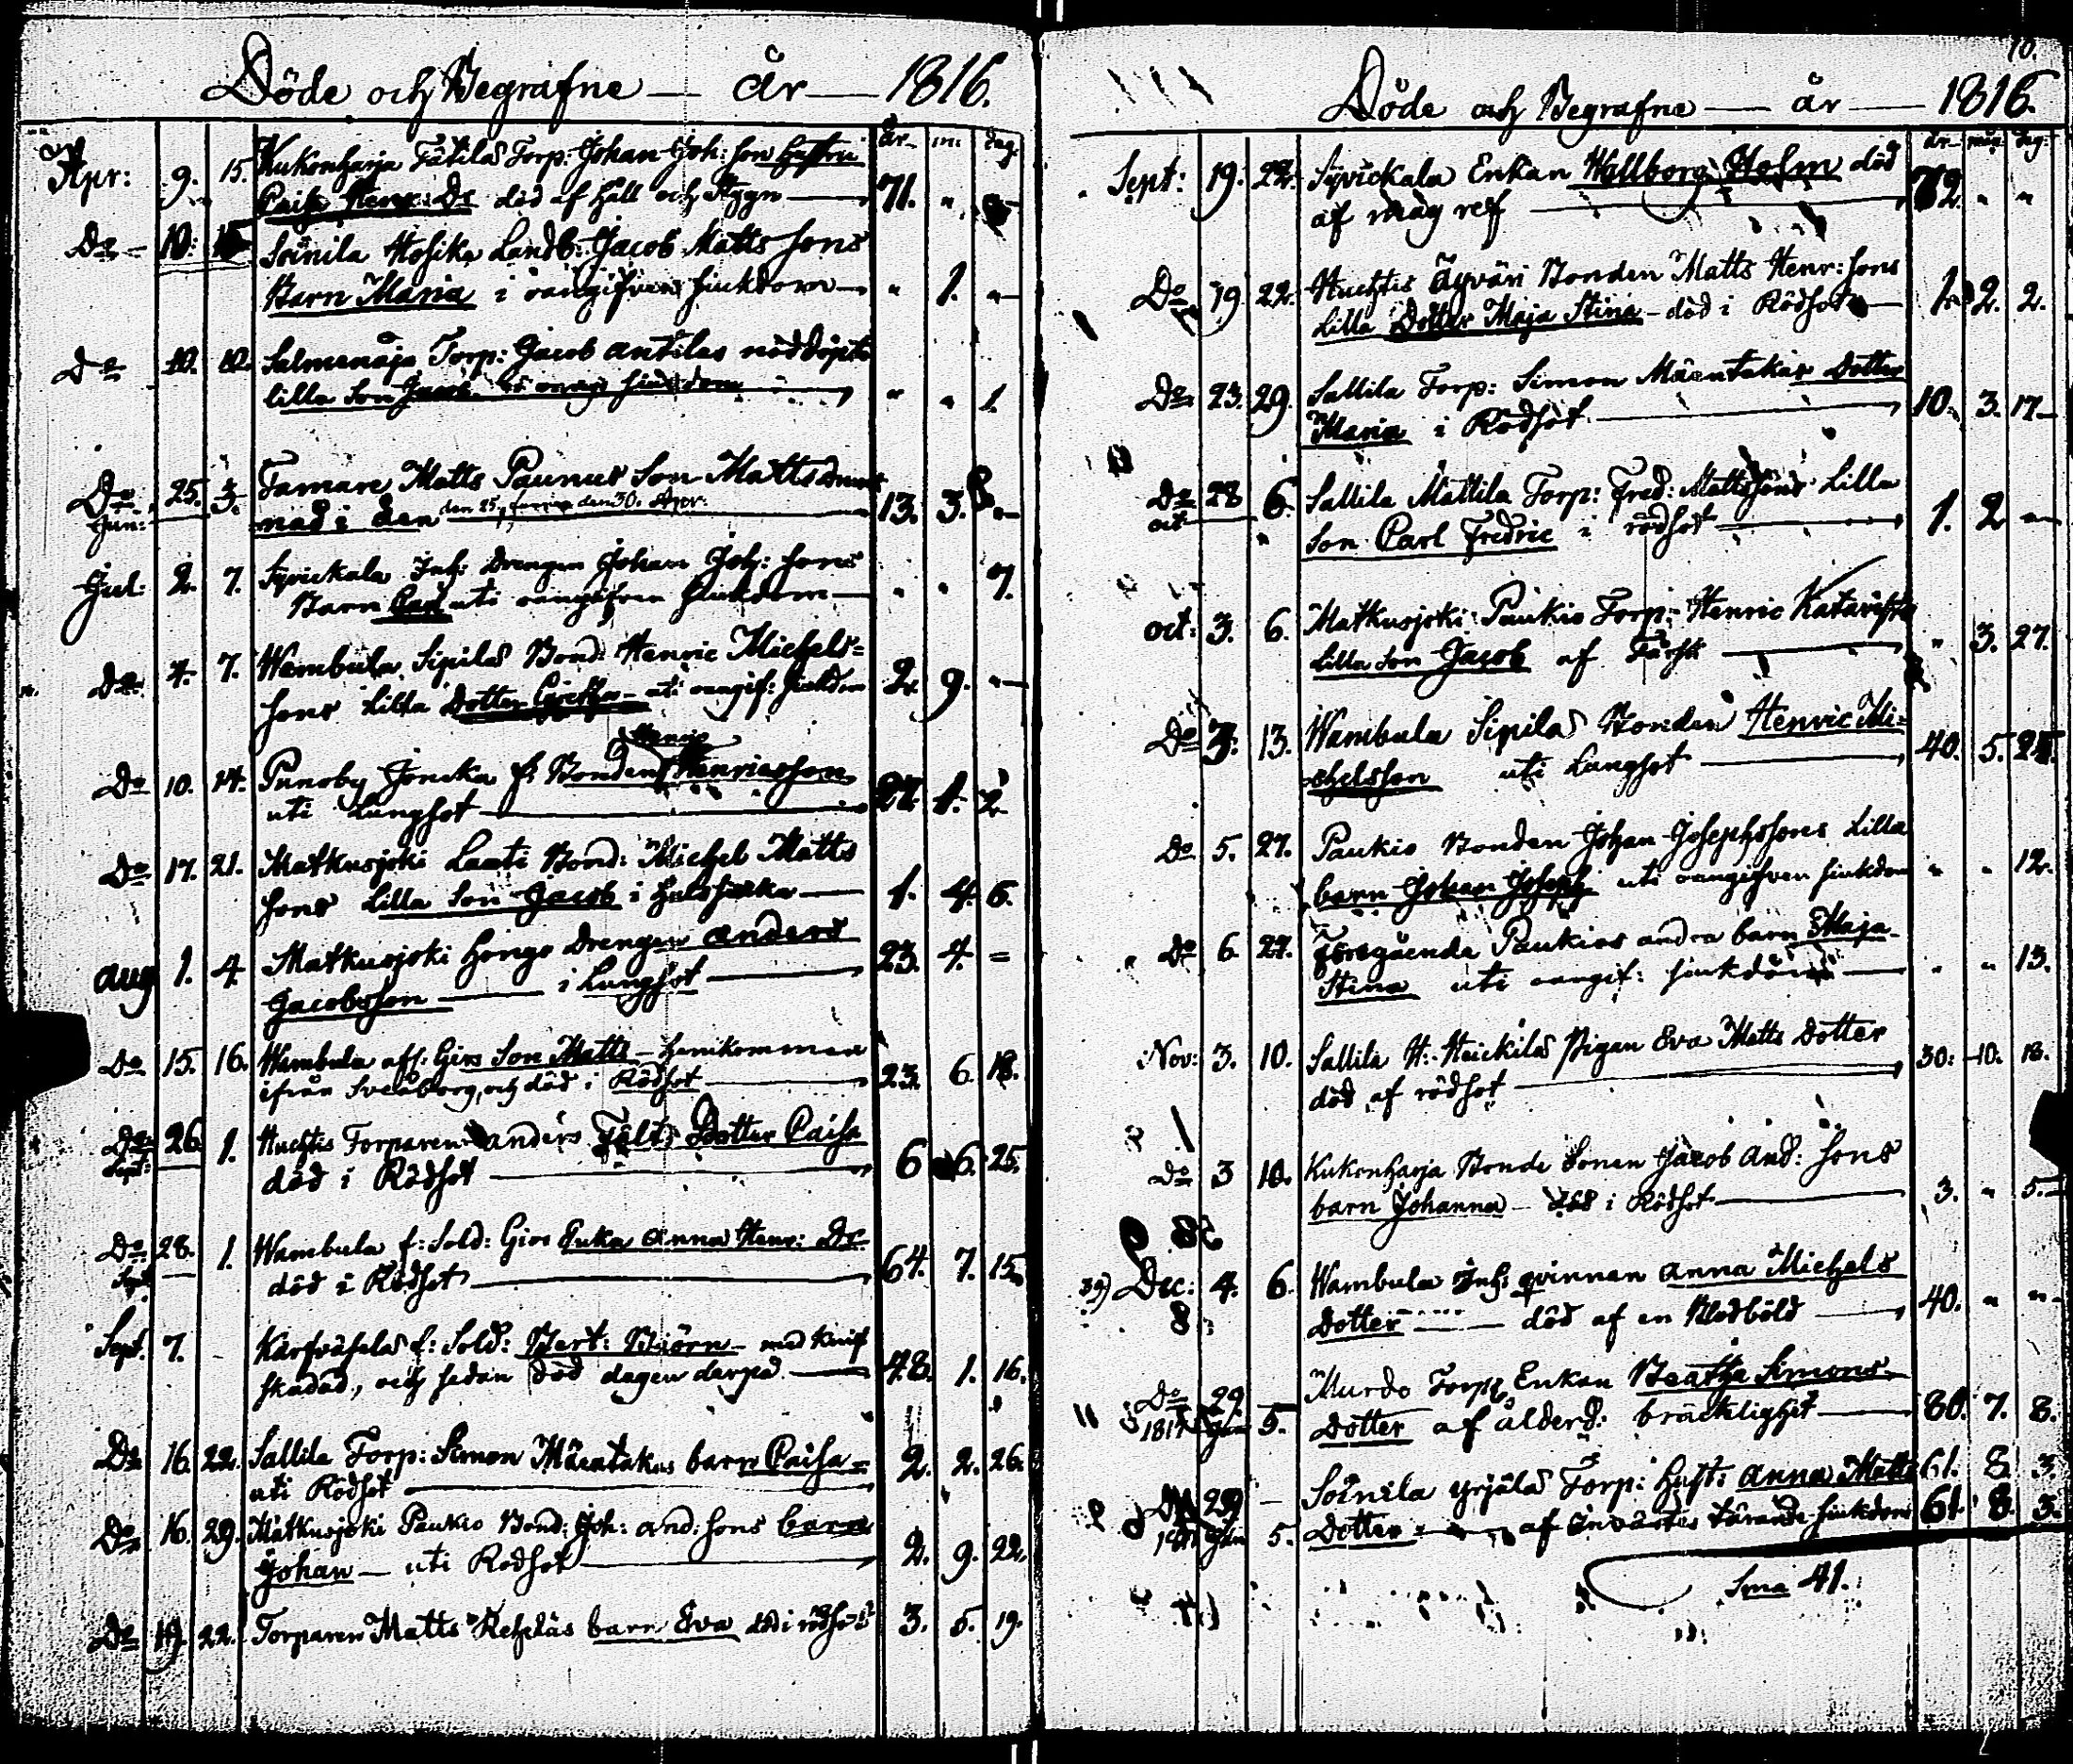 Döde och Begrafne — år — 1816.
år m: dag:
Apr: 9. 15. Kukonharja Torp: Johan Joh: son hustru
Caisa Henr: Dr död af håll och styng 71. "
Do 10. Soinila Landb: Jacob Matts sons
Barn Maria i oangifven siukdom " 1. "
Do 10. Torp: Jacob Antilas nöddöpte
lilla Son Jacob " " 1.
Do 25. 3. Tamare Matts Paunus Son Matts druck
Jun: nad i den 13. 3.
den 25, den 30. Apr:
Jul: 2. 7. Syvickala Inh: Drengen Johan Joh: sons
Barn uti oangifven siukdom " " 7.
Do 4. 7. Wambula Sipilas Bond: Henric Michels=
sons Lilla Dotter Gretha uti oangif: siukdom 2. 9. "
Henric
Do 10. 14. Punoby Joncka f: Bonden Henricsson
uti Lungsot 27. 1. 2
Do 17. 21. Matkusjoki Laati Bond: Michel Matts
sons Lilla Son Jacob i halssiuka 1. 4. 6.
Aug 1. 4. Matkusjoki Hongo Drengen Anders 23. 4. =
Jacobsson i Lungsot
Do 15. 16. Wambula afs: Girs Son Matts hemkommen
ifrån Sveaborg, och död i Rödsot 23. 6. 18.
Do 26. 1. Huchtis Torparen Anders Fält Dotter Caisa
Sept: död i Rödsot 6 6. 25.
Do 28. 1. Wambula f: Sold: Girs Enka Anna Henr: Dr
Sept död i Rödsot 64. 7. 15.
Sept. 7. Karfväselä f: Sold: Bert: Biörn med knif
skadad, och sedan död dagen derpå 48. 1. 16.
Do 16. 22. Sallila Torp: Simon Mäentakas barn Caisa
uti Rödsot 2. 2. 26.
Do 16. 29. Matkusjoki Paukio Bond: Joh: And: sons barn
Johan — uti Rödsot 2. 9. 22.
Do 19. 22. Torparen Matts Kepsläs barn Eva död i rödsot 3. 5. 19.
10.
Döde och Begrafne — år — 1816.
år mån dag:
Sept: 19. 22. Syvickala Enkan Wallborg Holm död
af mag ref 72. " "
Do 19 22. Huchtis Äyväri Bonden Matts Henr: sons
Lilla Dotter Maja Stina — död i Rödsot 1. 2. 2.
Do 23. 29. Sallila Torp: Simon Mäentakas Dotter
Maria i Rödsot 10. 3. 17
Do 28 6. Sallila Mattila Torp: Fred: Mattssons Lilla
oct Son Carl Fredric i rödsot 1. 2 "
oct: 3. 6. Matkusjoki Paukio Torp: Henric
Lilla Son Jacob af " 3. 27.
Do 3. 13. Wambula Sipilas Bonden Henric Mi=
chelsson uti Lungsot 40. 5.
Do 5. 27. Paukio Bonden Johan Josephsons Lilla
barn Johan Joseph uti oangifven siukdom " " 12.
Do 6 27. Föregående Paukios andra barn Maja
Stina uti oangif: siukdom " " 13.
Nov: 3. 10. Sallila H: Heickilas Pigan Eva Matts Dotter
död af rödsot 30. 10. 18.
Do 3 10. Kukonharja Bonde Sonen Jacob And: Sons
barn Johanna — död i Rödsot 3. " 5.
Dec: 4. 6. Wambula Inh: qvinnan Anna Michels
Dotter — död af en Blodböld 40. " "
Do 29 Murdo Torp: Enkan Beatha Simons
1817 Jan 5. Dotter af ålderd: bräcklighet 80. 7. 8.
Do 29 Soinila Yrjälas Torp: Hust: Anna Matts 61. 8. 3.
1817 Jan 5. Dotter af invärtes tärande siukdom 61. 8. 3.
Sma 41.